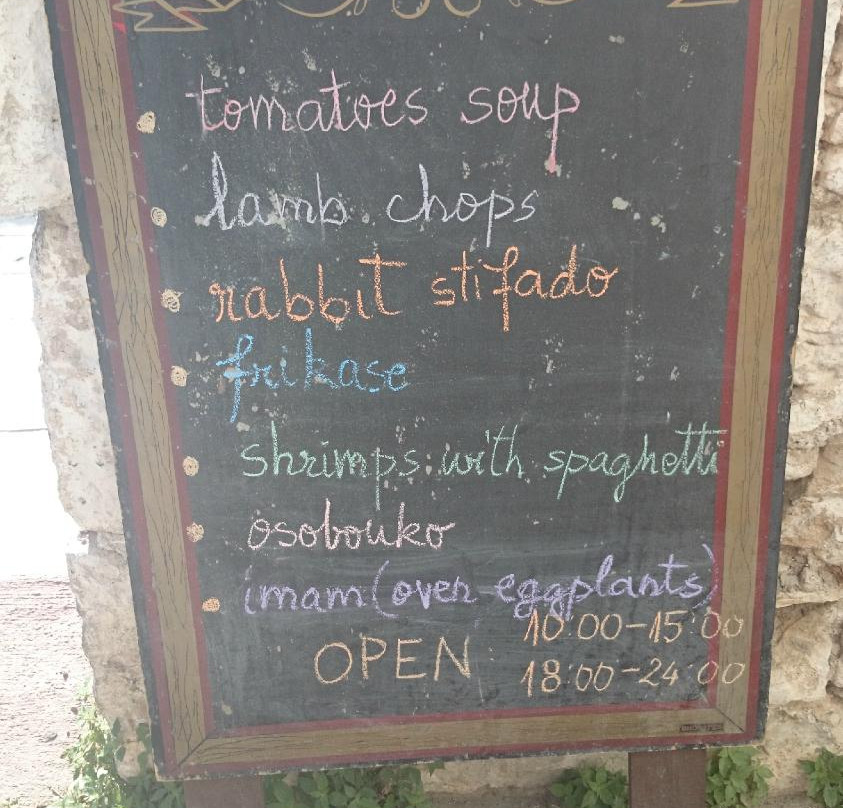 tomatoes soup
lamb chops
rabbit stifado
frikase
shrimps with spaghetti
osobouko
imam (over eggplants)
OPEN 10:00-15:00
18:00-24:00